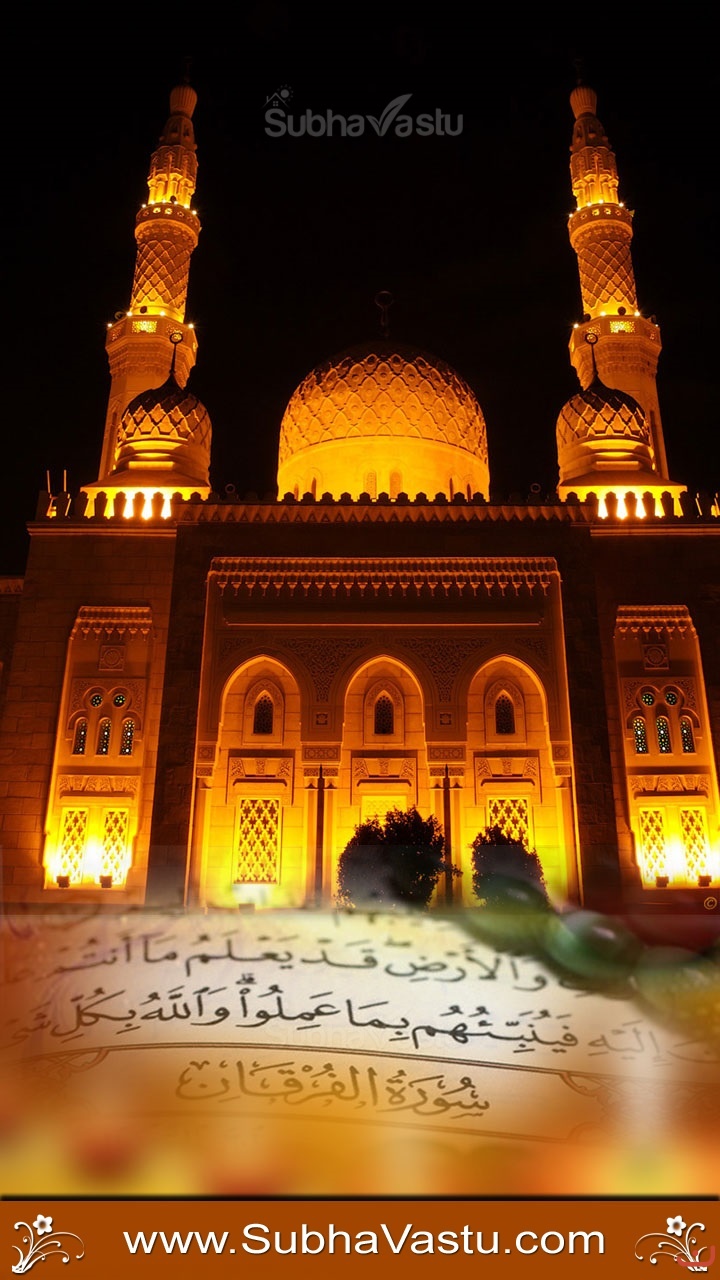 SubhaVastu
©
وَٱلْأَرْضِ قَدْ يَعْلَمُ مَآ أَنتُمْ
إِلَيْهِ فَيُنَبِّئُهُم بِمَا عَمِلُوا۟ ۗ وَٱللَّهُ بِكُلِّ
سُورَةُ الْفُرْقَانِ
www.SubhaVastu.com